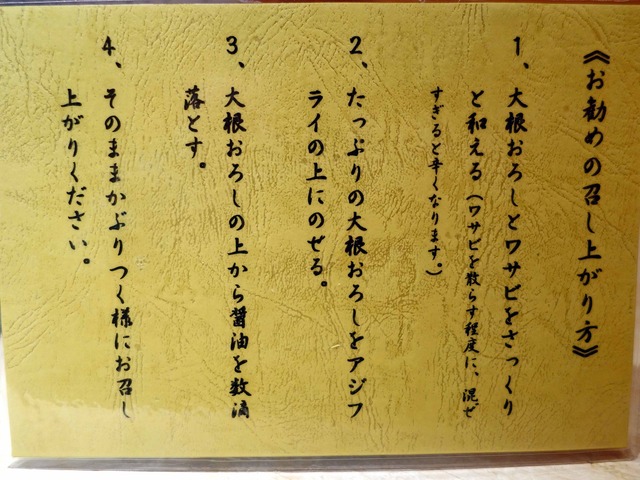 《お勧めの召し上がり方》
1、大根おろしとワサビをさっくり
と和える（ワサビを散らす程度に、混ぜ
すぎると辛くなります。）
2、たっぷりの大根おろしをアジフ
ライの上にのせる。
3、大根おろしの上から醤油を数滴
落とす。
4、そのままかぶりつく様にお召し
上がりください。